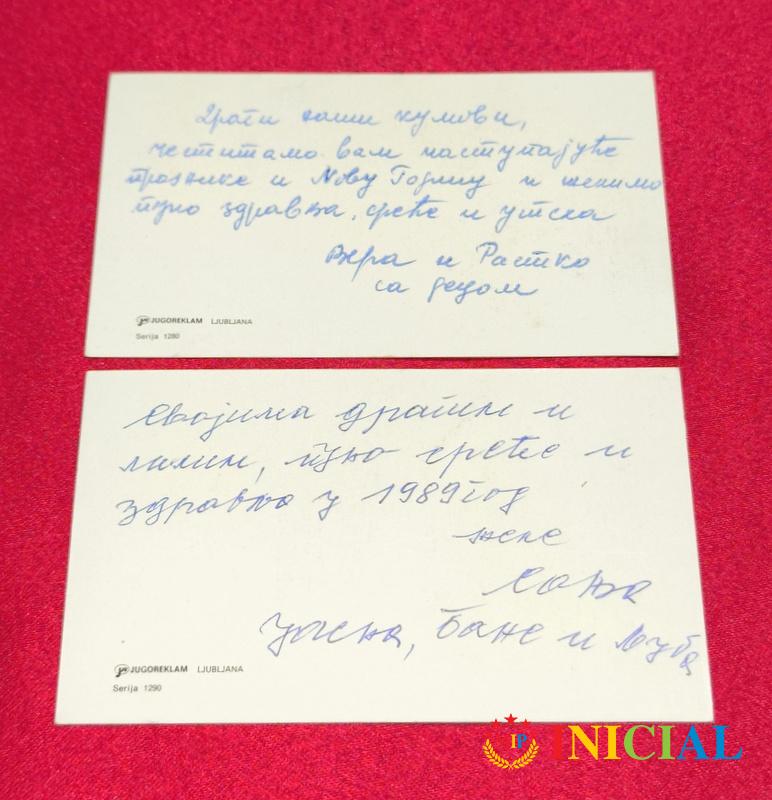 Драги наши кумови,
честитамо вам наступајуће
празнике и Нову Годину и желимо
пуно здравља, среће и успеха
Вера и Растко
са децом
JUGOREKLAM LJUBLJANA
Serija 1280
Својима драгим и
милим, пуно среће и
здравља у 1989 год
желе
Соња
Јасна, Бане и Љуба
JUGOREKLAM LJUBLJANA
Serija 1290
IP INICIAL